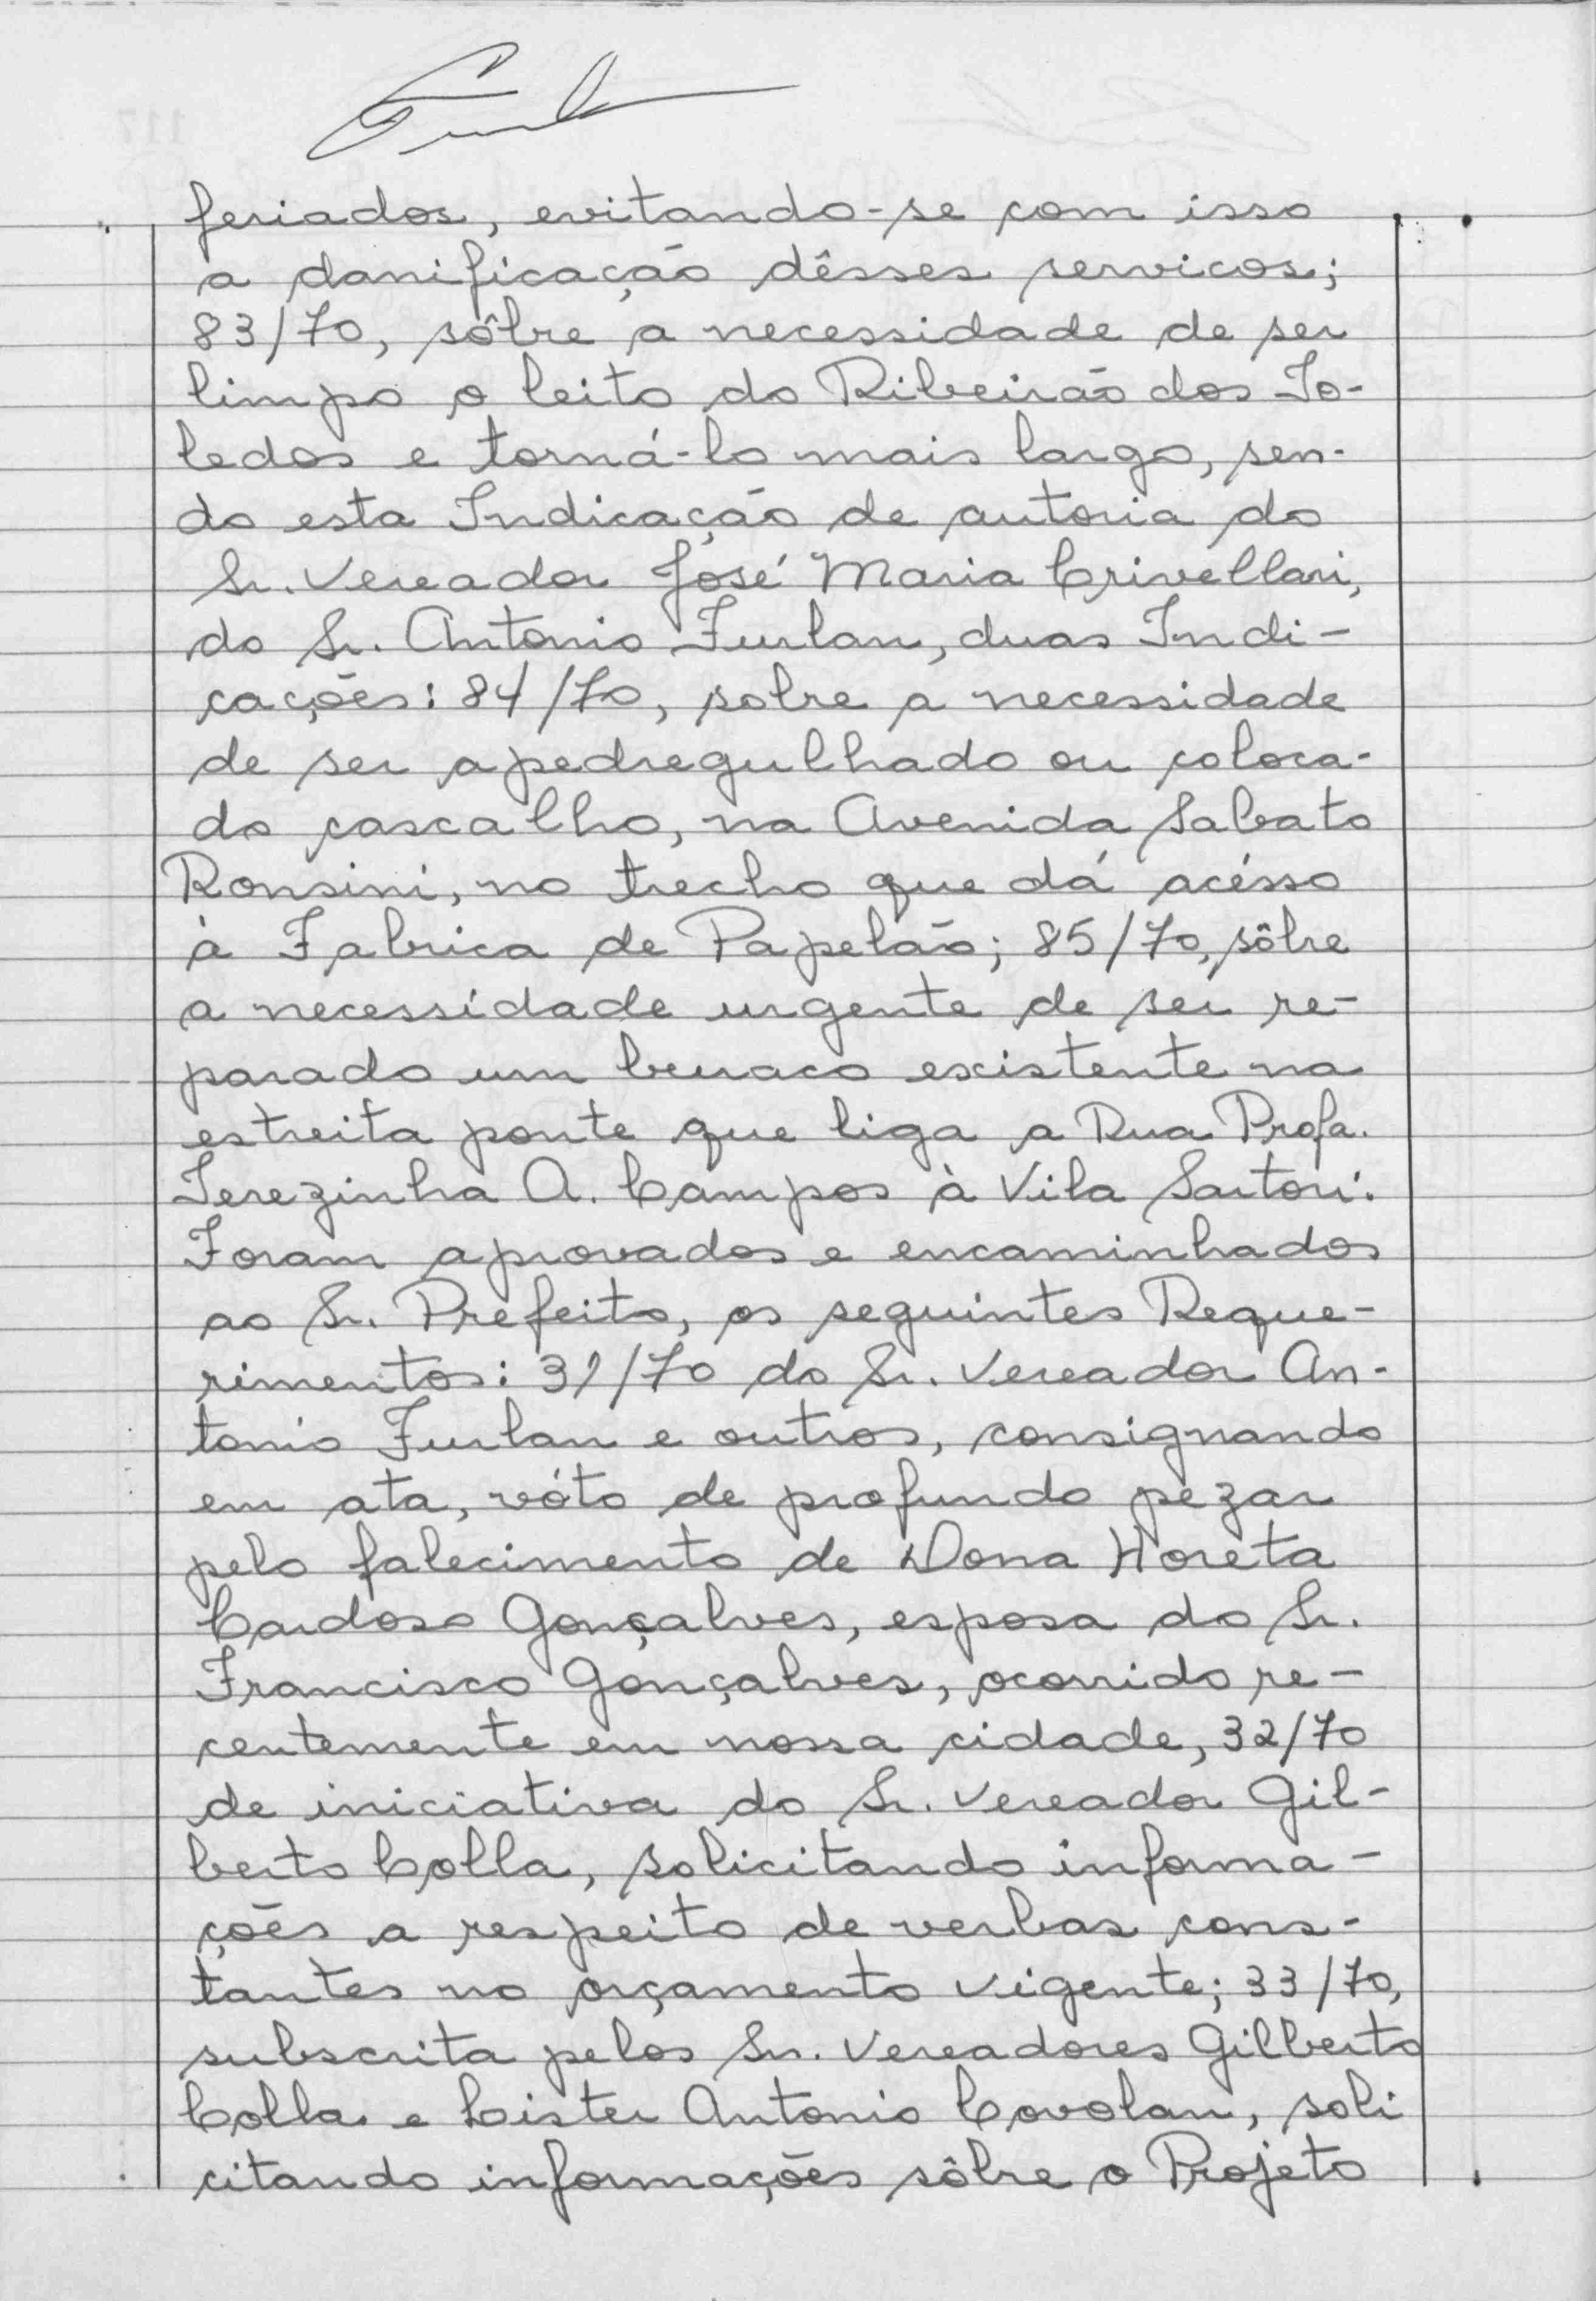 feriados, evitando-se com isso
a danificação dêsses servicos;
83/70, sôbre a necessidade de ser
limpo o leito do Ribeirão dos To-
ledos e torná-lo mais largo, sen-
do esta Indicação de autoria do
Sr. Vereador José Maria Crivellari,
do Sr. Antonio Furlan, duas Indi-
cações: 84/70, sobre a necessidade
de ser apedregulhado ou coloca-
do cascalho, na Avenida Sabato
Ronsini, no trecho que dá acésso
à Fabrica de Papelão; 85/70, sôbre
a necessidade urgente de ser re-
parado um buraco existente na
estreita ponte que liga a Rua Profa.
Terezinha A. Campos à Vila Sartori.
Foram aprovados e encaminhados
ao Sr. Prefeito, os seguintes Reque-
rimentos: 31/70 do Sr. Vereador An-
tonio Furlan e outros, consignando
em ata, vóto de profundo pezar
pelo falecimento de Dona Horeta
Cardoso Gonçalves, esposa do Sr.
Francisco Gonçalves, ocorrido re-
centemente em nossa cidade, 32/70
de iniciativa do Sr. Vereador Gil-
berto Colla, solicitando informa-
ções a respeito de verbas cons-
tantes no orçamento vigente; 33/70,
subscrita pelos Srs. Vereadores Gilberto
Colla e Lister Antonio Covolan, soli
citando informações sôbre o Projeto